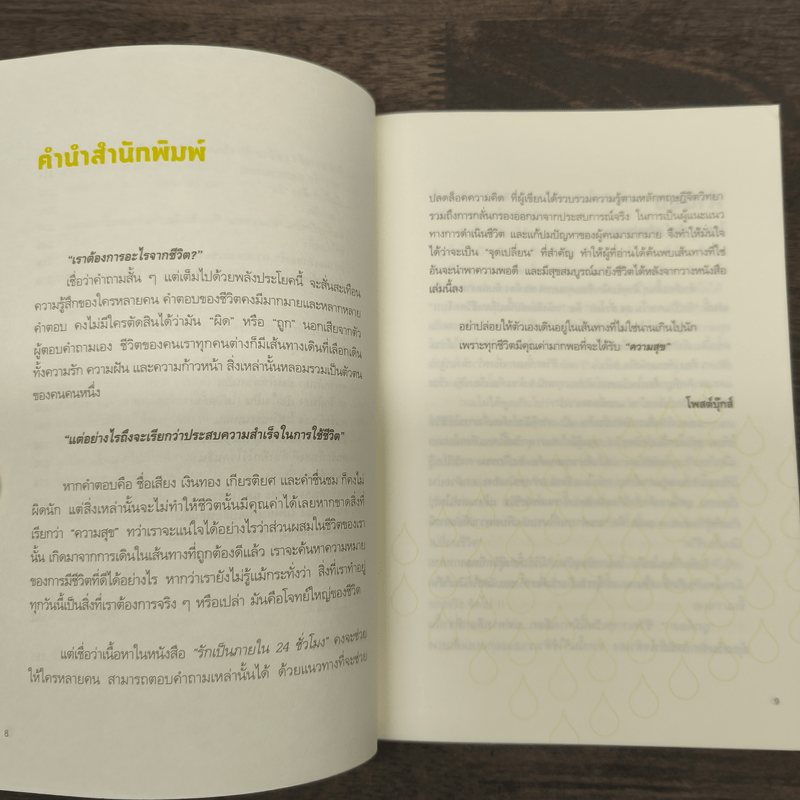 คำนำสำนักพิมพ์
"เราต้องการอะไรจากชีวิต?"
เชื่อว่าคำถามสั้น ๆ แต่เต็มไปด้วยพลังประโยคนี้ จะสั่นสะเทือน
ความรู้สึกของใครหลายคน คำตอบของชีวิตคงมีมากมายและหลากหลาย
คำตอบ คงไม่มีใครตัดสินได้ว่ามัน "ผิด" หรือ "ถูก" นอกเสียจากตัว
ผู้ตอบคำถามเอง ชีวิตของคนเราทุกคนต่างก็มีเส้นทางเดินที่เลือกเดิน
ทั้งความรัก ความฝัน และความก้าวหน้า สิ่งเหล่านั้นหลอมรวมเป็นตัวตน
ของคนคนหนึ่ง
"แต่อย่างไรถึงจะเรียกว่าประสบความสำเร็จในการใช้ชีวิต"
หากคำตอบคือ ชื่อเสียง เงินทอง เกียรติยศ และคำชื่นชม ก็คงไม่
ผิดนัก แต่สิ่งเหล่านั้นจะไม่ทำให้ชีวิตนั้นมีคุณค่าได้เลยหากขาดสิ่งที่
เรียกว่า "ความสุข" ทว่าเราจะแน่ใจได้อย่างไรว่าส่วนผสมในชีวิตของเรา
นั้น เกิดมาจากการเดินในเส้นทางที่ถูกต้องดีแล้ว เราจะค้นหาความหมาย
ของการมีชีวิตที่ดีได้อย่างไร หากว่าเรายังไม่รู้แม้กระทั่งว่า สิ่งที่เราทำอยู่
ทุกวันนี้เป็นสิ่งที่เราต้องการจริง ๆ หรือเปล่า มันคือโจทย์ใหญ่ของชีวิต
แต่เชื่อว่าเนื้อหาในหนังสือ "รักเป็นภายใน 24 ชั่วโมง" คงจะช่วย
ให้ใครหลายคน สามารถตอบคำถามเหล่านั้นได้ ด้วยแนวทางที่จะช่วย
8
ปลดล็อคความคิด ที่ผู้เขียนได้รวบรวมความรู้ตามหลักทฤษฎีจิตวิทยา
รวมถึงการกลั่นกรองออกมาจากประสบการณ์จริง ในการเป็นผู้แนะแนว
ทางการดำเนินชีวิต และแก้ปมปัญหาของผู้คนมามากมาย จึงทำให้มั่นใจ
ได้ว่าจะเป็น "จุดเปลี่ยน" ที่สำคัญ ทำให้ผู้ที่อ่านได้ค้นพบเส้นทางที่ใช่
อันจะนำพาความพอดี และมีสุขสมบูรณ์มายังชีวิตได้หลังจากวางหนังสือ
เล่มนี้ลง
อย่าปล่อยให้ตัวเองเดินอยู่ในเส้นทางที่ไม่ใช่นานเกินไปนัก
เพราะทุกชีวิตมีคุณค่ามากพอที่จะได้รับ "ความสุข"
โพสต์บุ๊กส์
9